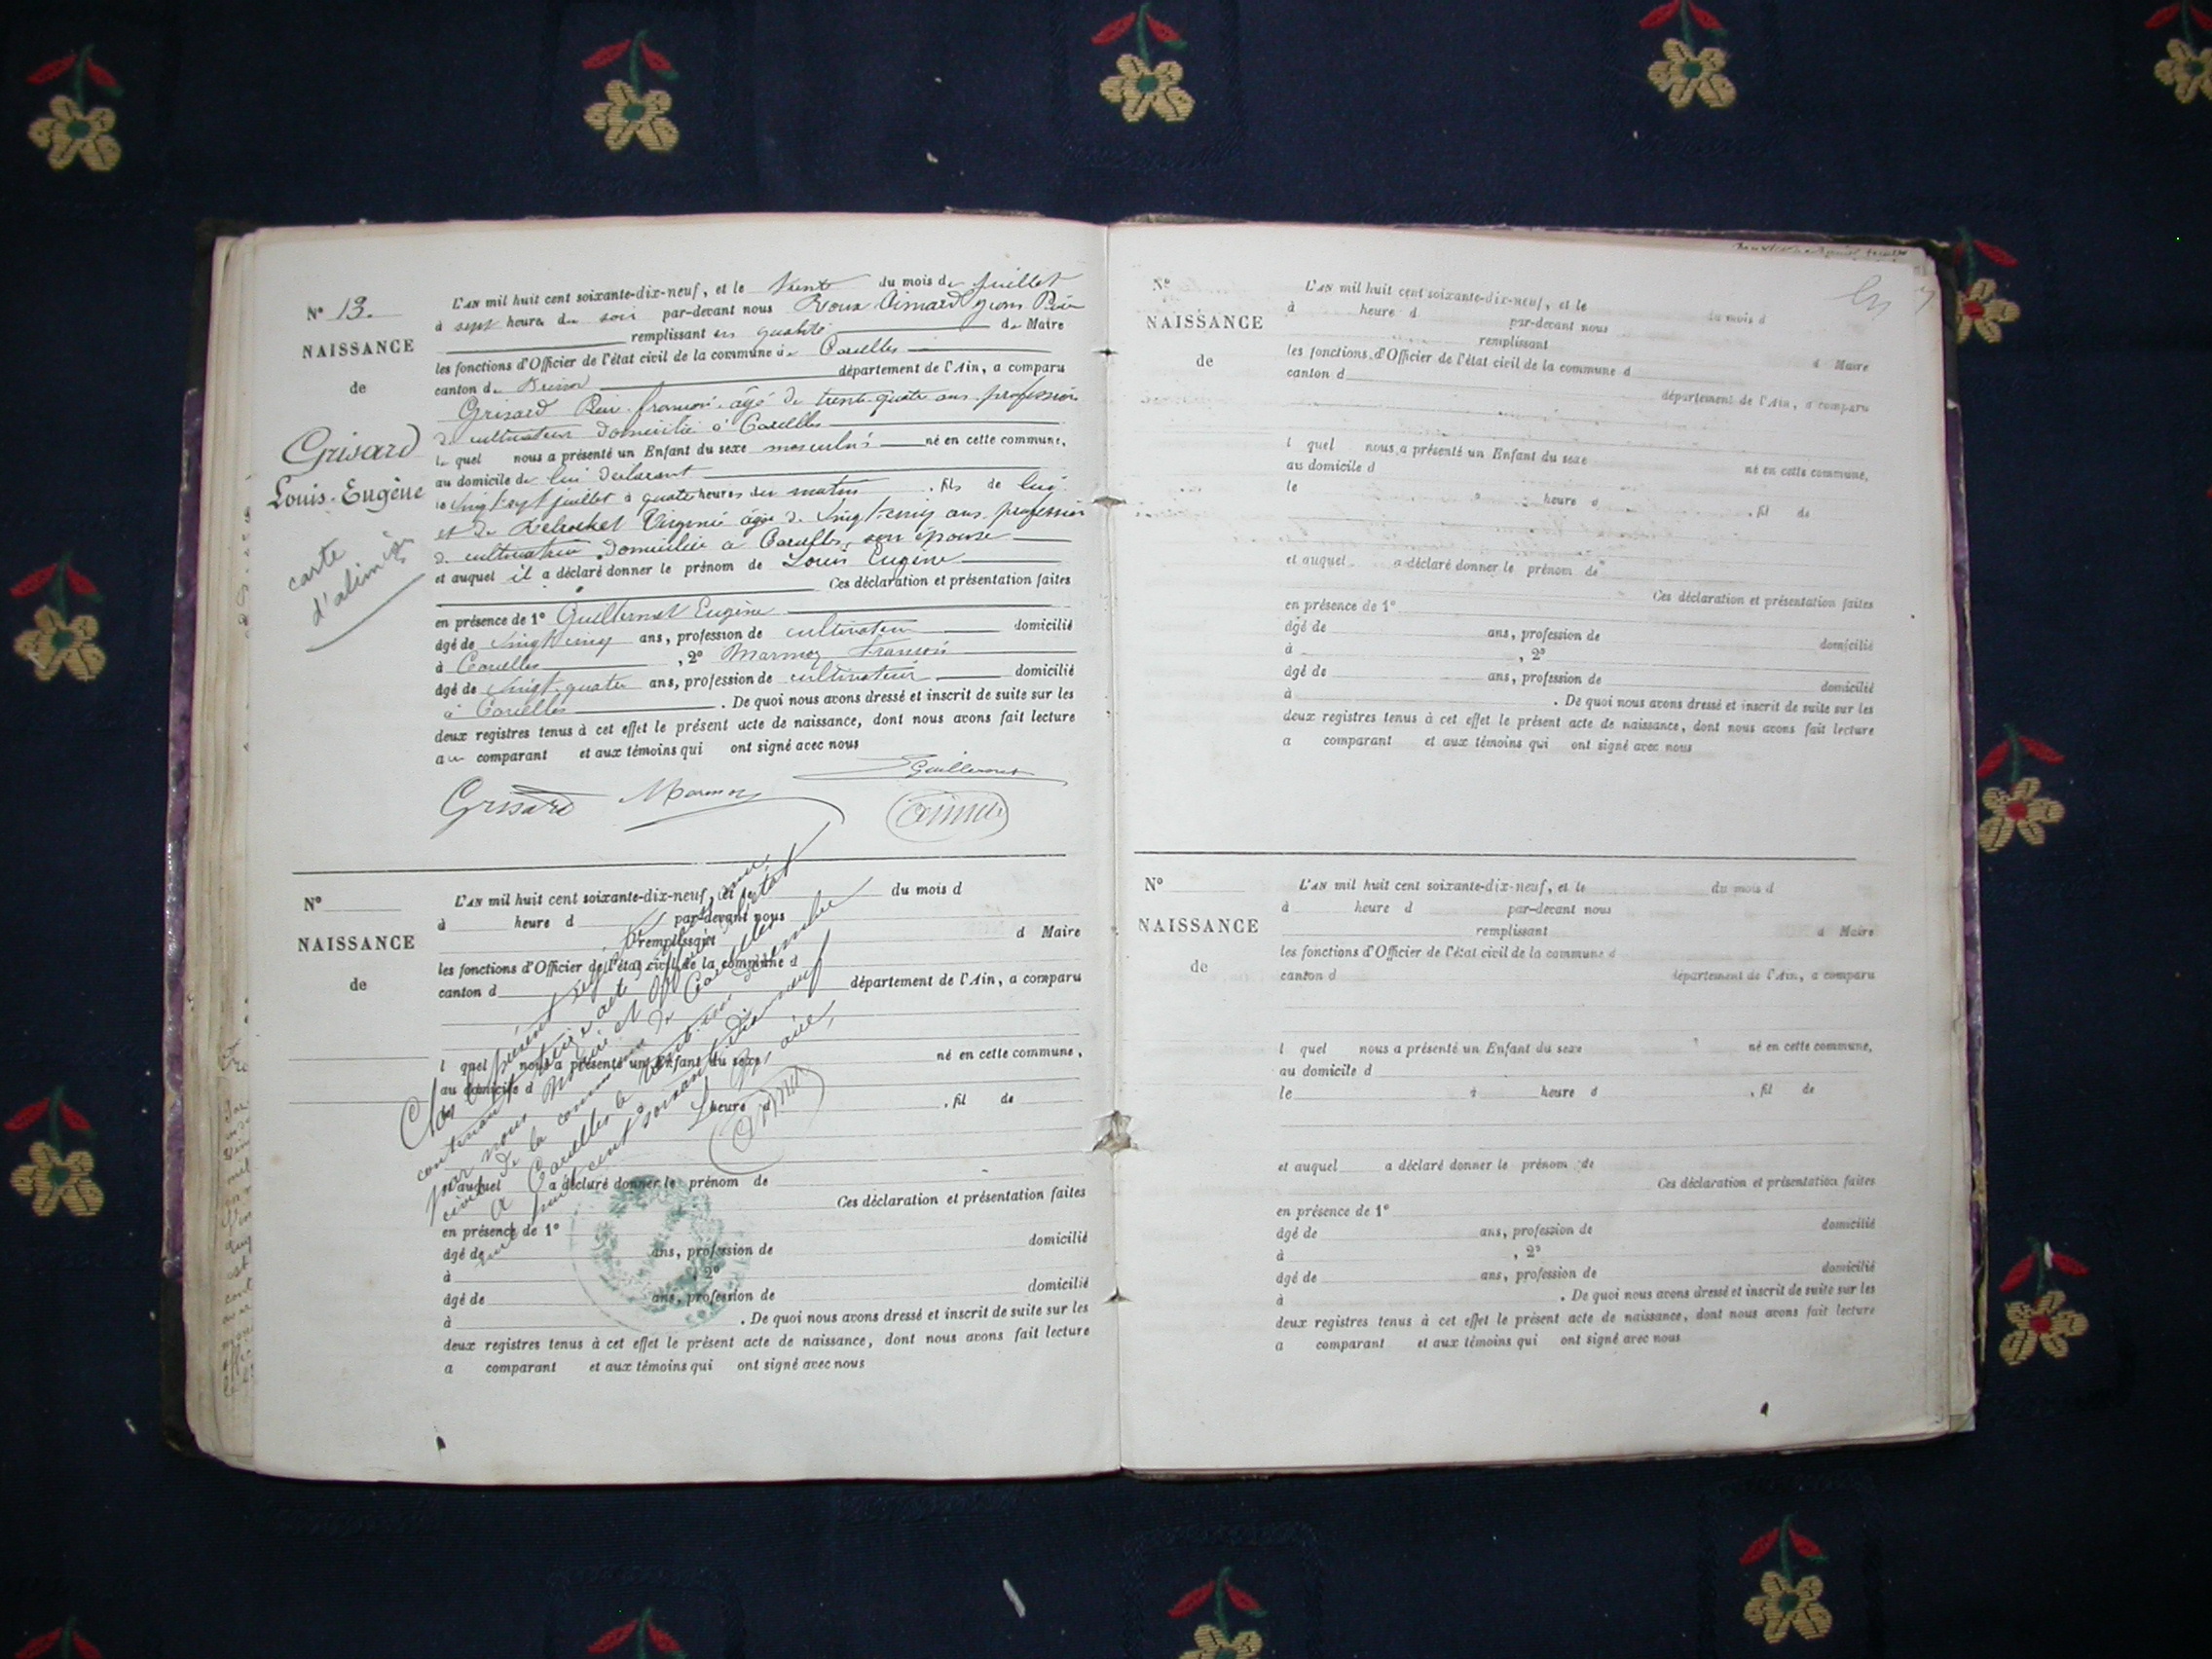 N° 13.
NAISSANCE
de
Grisard
Louis-Eugène
carte
d'alim
L'AN mil huit cent soixante-dix-neuf, et le trente du mois de juillet
à sept heures du soir par-devant nous Roux Aimard
remplissant en qualité de Maire
les fonctions d'Officier de l'état civil de la commune de Corcelles
canton de département de l'Ain, a comparu
Grisard âgé de trente-quatre ans profession
de cultivateur domicilié à Corcelles
le quel nous a présenté un Enfant du sexe masculin né en cette commune,
au domicile de lui déclarant
le vingt sept juillet à quatre heures du matin , fils de lui
et de Virginie âgée de vingt-cinq ans, profession
de domiciliée à Corcelles, son épouse
et auquel il a déclaré donner le prénom de Louis Eugène
Ces déclaration et présentation faites
en présence de 1° Guillermet Eugène
âgé de vingt cinq ans, profession de cultivateur domicilié
à Corcelles , 2° Marmoz François
âgé de vingt-quatre ans, profession de cultivateur domicilié
à Corcelles . De quoi nous avons dressé et inscrit de suite sur les
deux registres tenus à cet effet le présent acte de naissance, dont nous avons fait lecture
au comparant et aux témoins qui ont signé avec nous
Guillermet
Grisard Marmoz
N°
NAISSANCE
de
L'AN mil huit cent soixante-dix-neuf, et le du mois d
à heure d par-devant nous
remplissant d Maire
les fonctions d'Officier de l'état civil de la commune d
canton d département de l'Ain, a comparu
l quel nous a présenté un Enfant du sexe né en cette commune,
au domicile d
le à heure d , fil de
et auquel a déclaré donner le prénom de
Ces déclaration et présentation faites
en présence de 1°
âgé de ans, profession de domicilié
à , 2°
âgé de ans, profession de domicilié
à . De quoi nous avons dressé et inscrit de suite sur les
deux registres tenus à cet effet le présent acte de naissance, dont nous avons fait lecture
a comparant et aux témoins qui ont signé avec nous
Clos le présent registre
contenant treize actes
par nous Maire et officier de l'état
civil de la commune de Corcelles
A Corcelles le trente un décembre
mil huit cent soixante dix neuf
Le Maire,
N°
NAISSANCE
de
L'AN mil huit cent soixante-dix-neuf, et le du mois d
à heure d par-devant nous
remplissant d Maire
les fonctions d'Officier de l'état civil de la commune d
canton d département de l'Ain, a comparu
l quel nous a présenté un Enfant du sexe né en cette commune,
au domicile d
le à heure d , fil de
et auquel a déclaré donner le prénom de
Ces déclaration et présentation faites
en présence de 1°
âgé de ans, profession de domicilié
à , 2°
âgé de ans, profession de domicilié
à . De quoi nous avons dressé et inscrit de suite sur les
deux registres tenus à cet effet le présent acte de naissance, dont nous avons fait lecture
a comparant et aux témoins qui ont signé avec nous
N°
NAISSANCE
de
L'AN mil huit cent soixante-dix-neuf, et le du mois d
à heure d par-devant nous
remplissant d Maire
les fonctions d'Officier de l'état civil de la commune d
canton d département de l'Ain, a comparu
l quel nous a présenté un Enfant du sexe né en cette commune,
au domicile d
le à heure d , fil de
et auquel a déclaré donner le prénom de
Ces déclaration et présentation faites
en présence de 1°
âgé de ans, profession de domicilié
à , 2°
âgé de ans, profession de domicilié
à . De quoi nous avons dressé et inscrit de suite sur les
deux registres tenus à cet effet le présent acte de naissance, dont nous avons fait lecture
a comparant et aux témoins qui ont signé avec nous